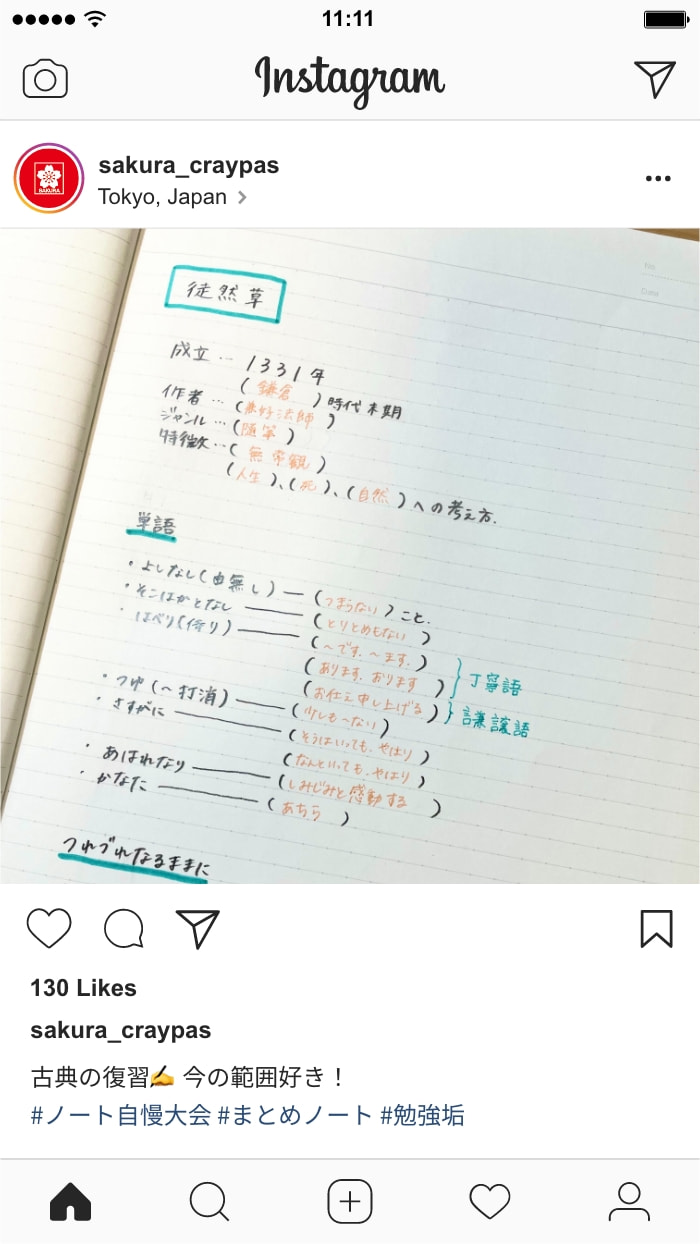 11:11
Instagram
SAKURA
sakura_craypas
Tokyo, Japan
No.
Date
徒然草
成立 … 1331年
(鎌倉)時代末期
作者 … (兼好法師)
ジャンル … (随筆)
特徴 … (無常観)
(人生)、(死)、(自然)への考え方.
単語
・よしなし(由無し) — (つまらない)こと.
・そこはかとなし — (とりとめもない)
・はべり(侍り) — (〜です.〜ます.)
(あります.おります) 丁寧語
(お仕え申し上げる) 謙譲語
・つゆ(〜打消) — (少しも〜ない)
・さすがに — (そうはいっても.やはり)
(なんといっても.やはり)
・あはれなり — (しみじみと感動する)
・かなた — (あちら)
つれづれなるままに
130 Likes
sakura_craypas
古典の復習✍️ 今の範囲好き！
#ノート自慢大会 #まとめノート #勉強垢